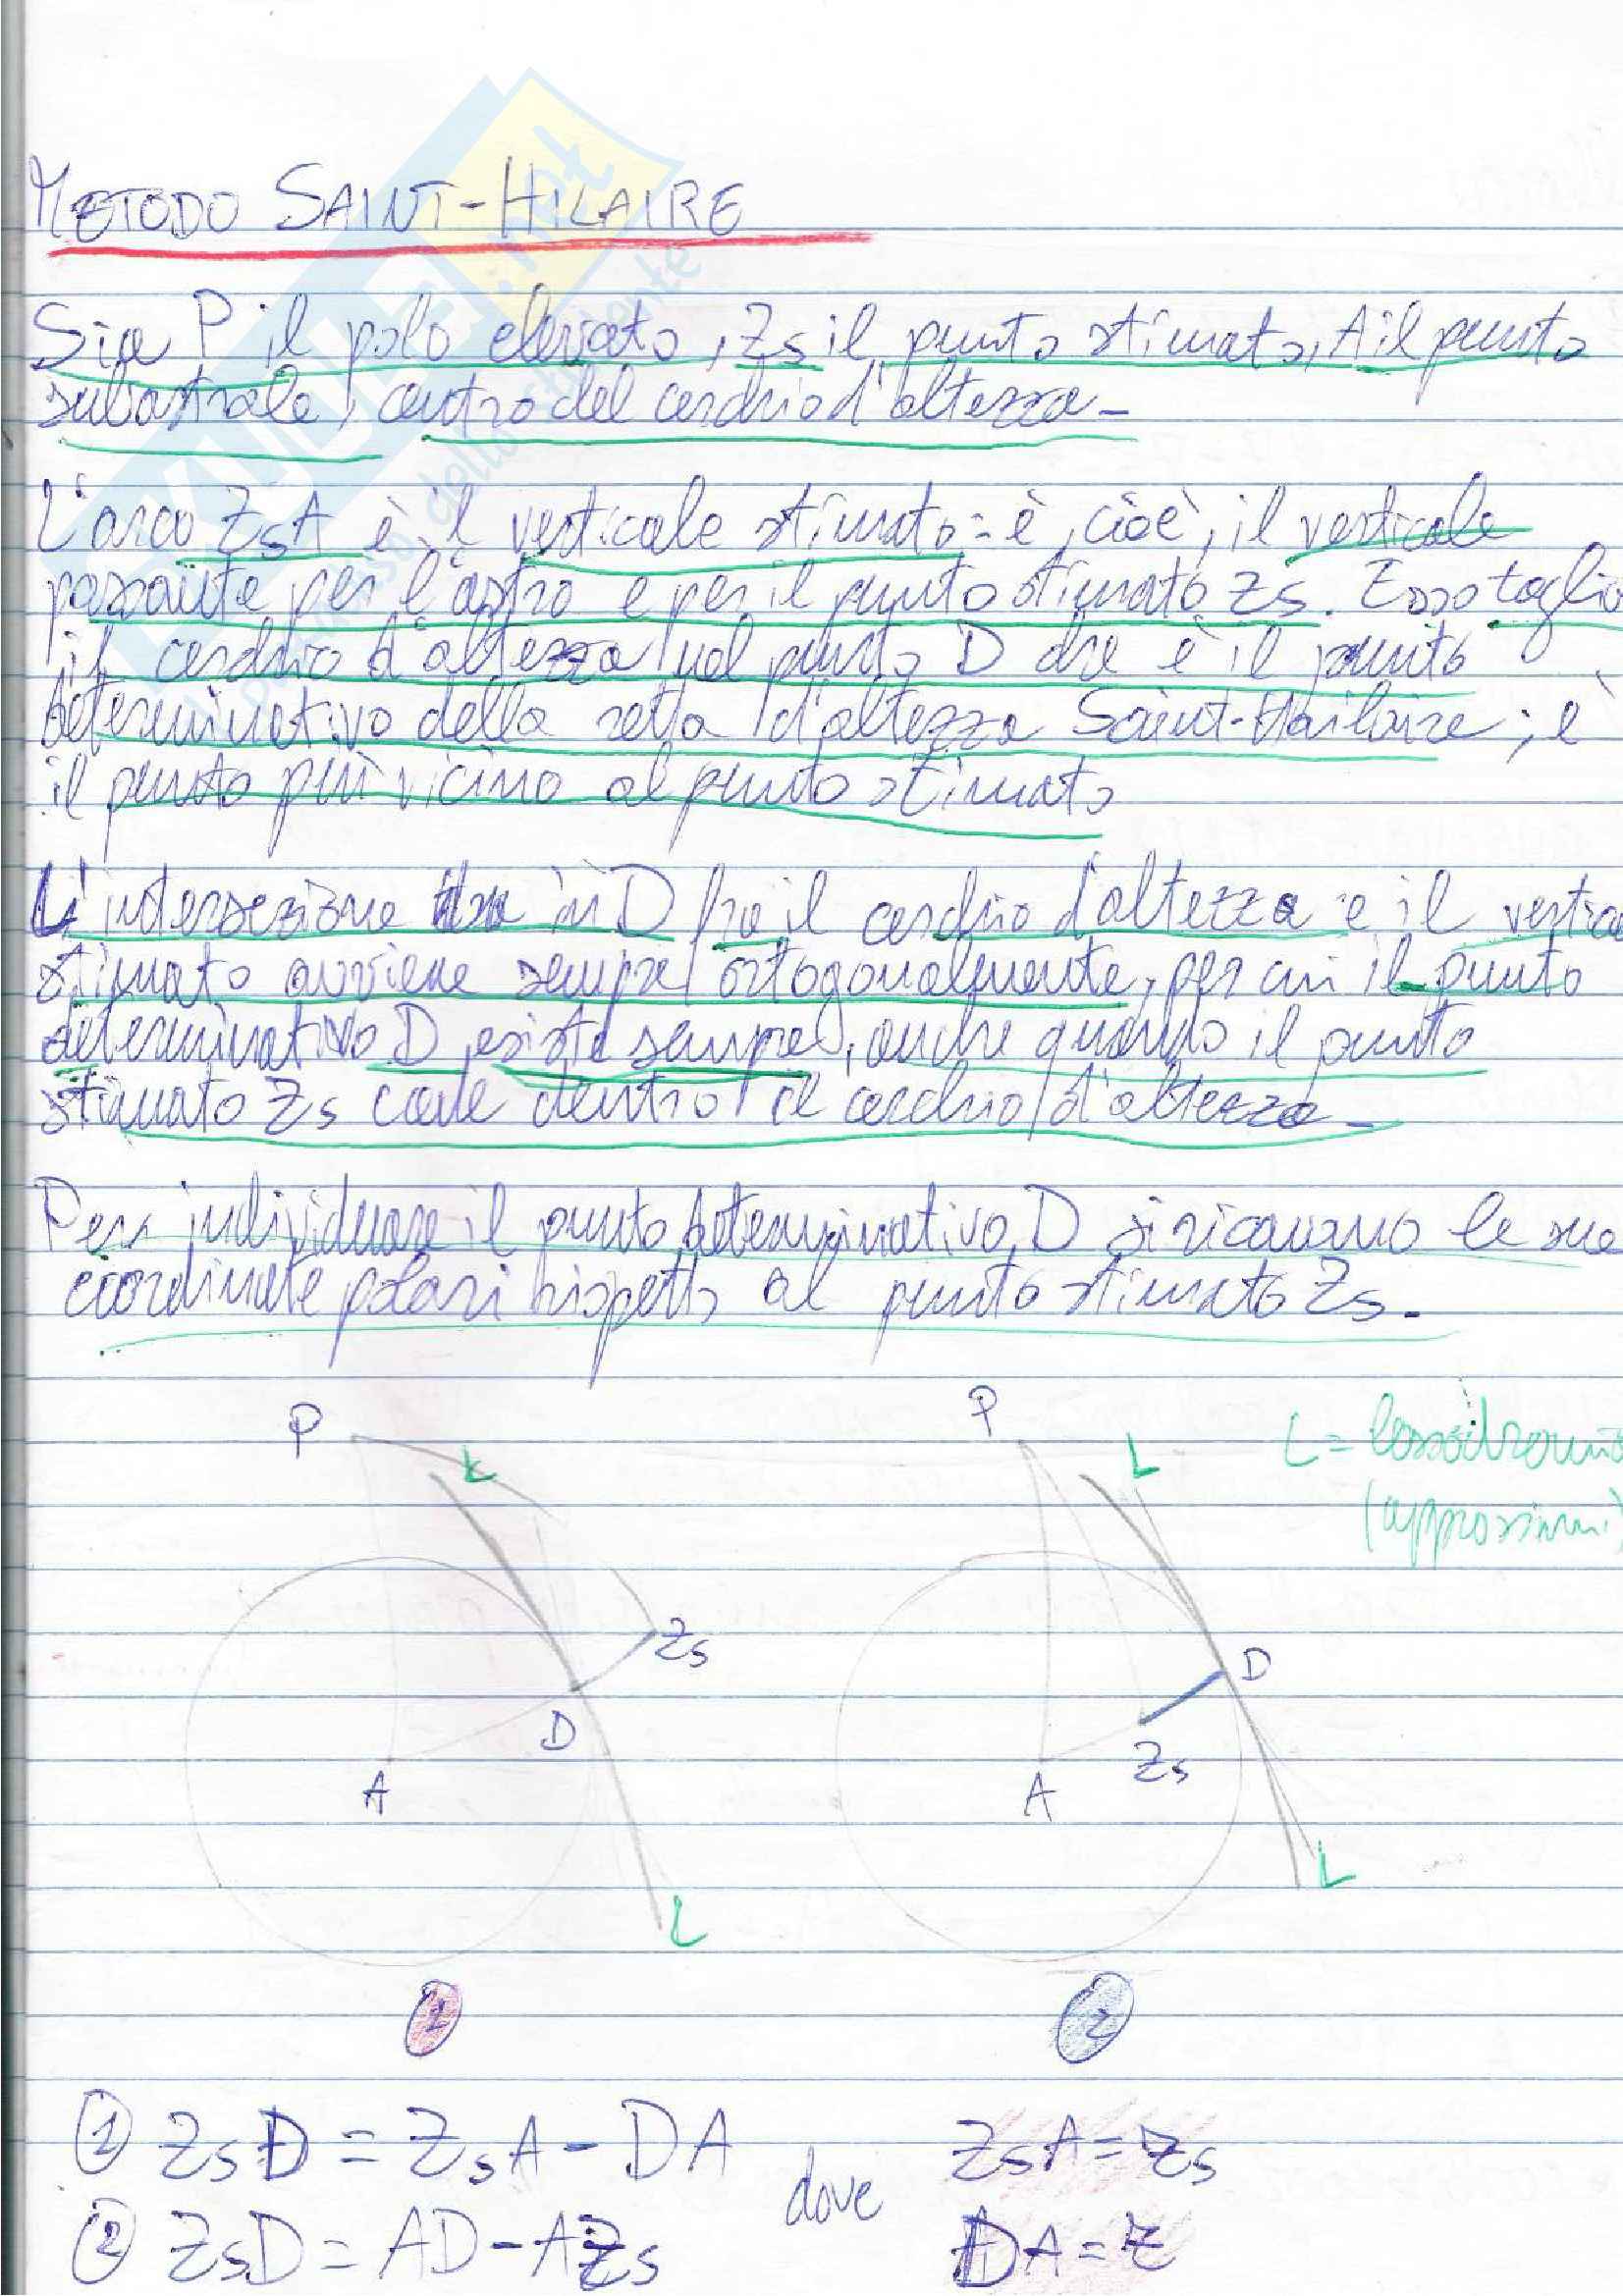 METODO SAINT-HILAIRE
Sia P il polo elevato, Zs il punto stimato, A il punto
subastrale, centro del cerchio d'altezza-
L'arco ZsA è il verticale stimato: è, cioè, il verticale
passante per l'astro e per il punto stimato Zs. Esso taglia
il cerchio d'altezza nel punto D che è il punto
determinativo della retta d'altezza Saint-Hailaire; è
il punto più vicino al punto stimato
L'intersezione in D fra il cerchio d'altezza e il vertica
stimato avviene sempre ortogonalmente, per cui il punto
determinativo D esiste sempre, anche quando il punto
stimato Zs cade dentro il cerchio d'altezza-
Per individuare il punto determinativo D si ricavano le sue
coordinate polari rispetto al punto stimato Zs.
P
L
P
L
L = lossodromia
(approssim.)
Zs
D
D
Zs
A
A
L
L
1
2
① ZsD = ZsA - DA
dove
ZsA = zs
② ZsD = AD - AZs
DA = z